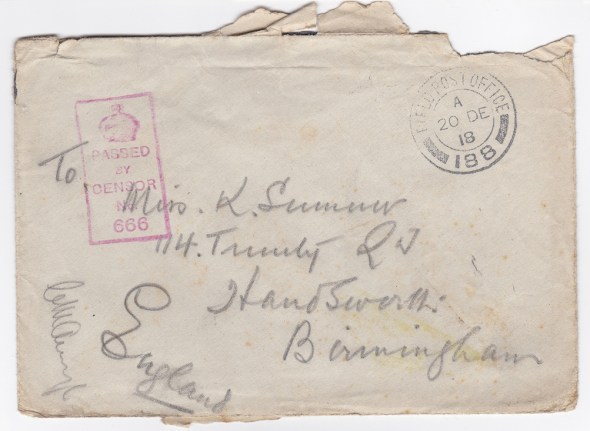 FIELD POST OFFICE
A
20 DE
18
188
PASSED
BY
CENSOR
No.
666
To
Miss. K. Sumner
114. Trinity Rd
Handsworth.
Birmingham
England